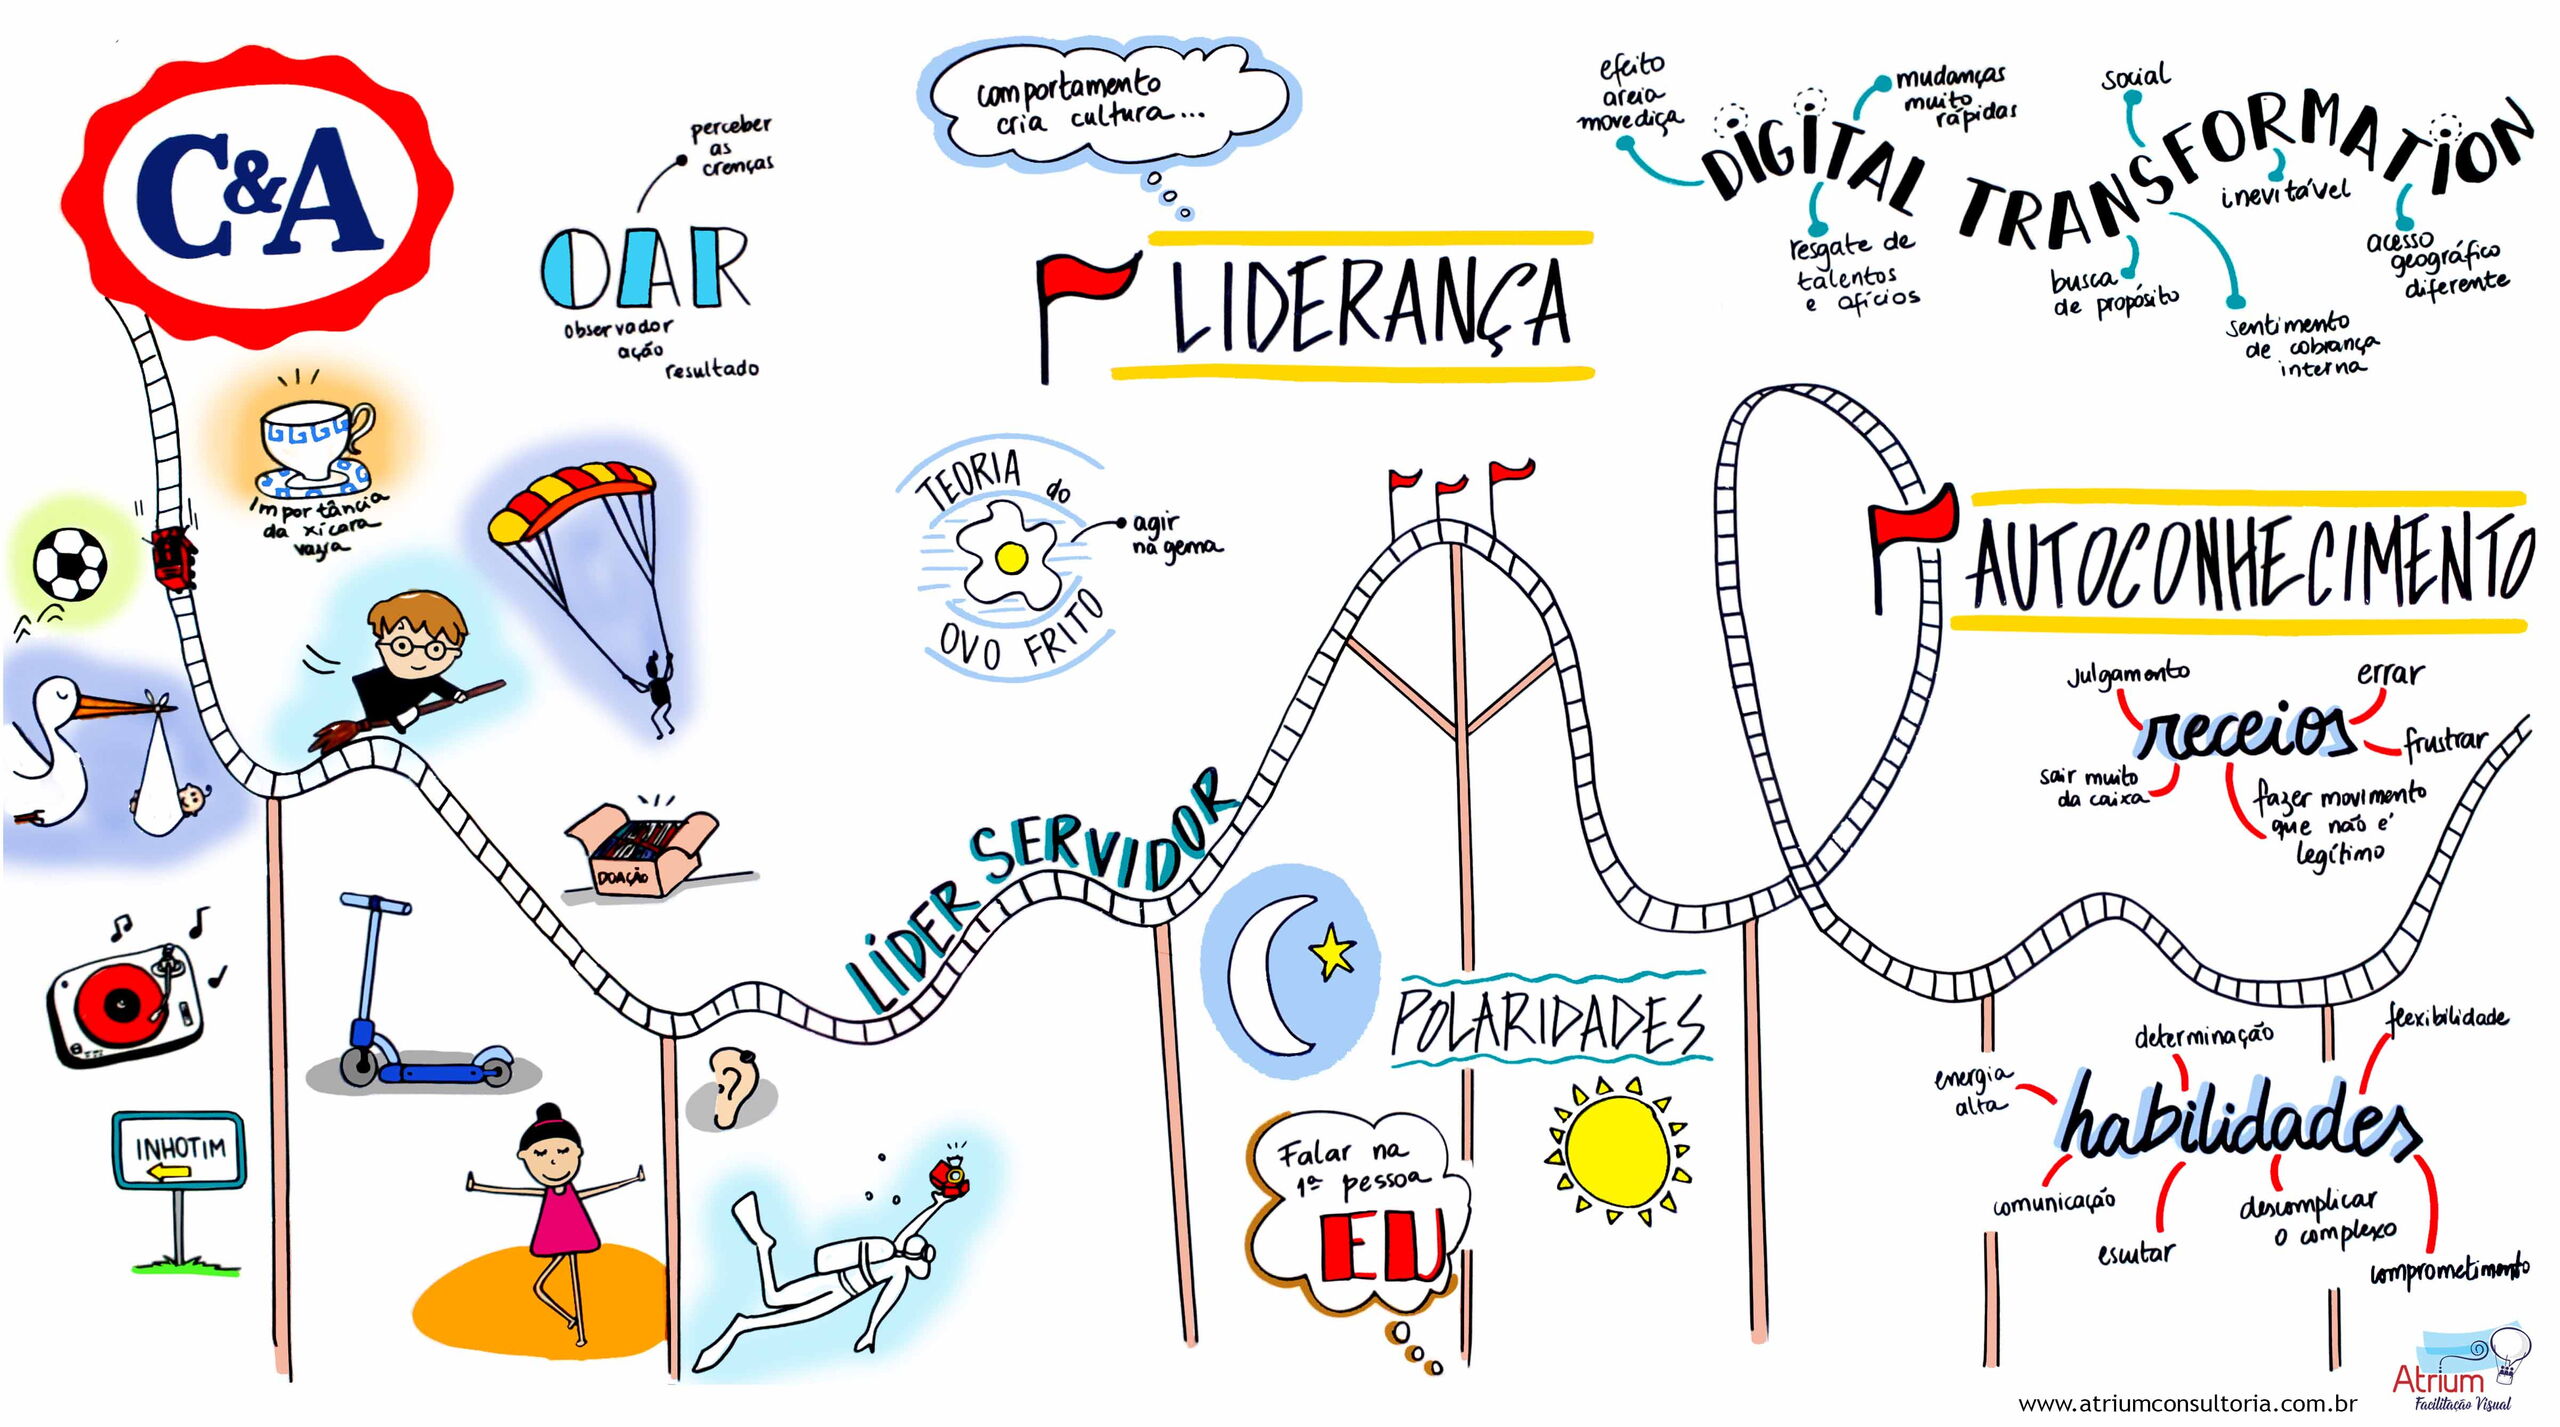 C&A
perceber
as
crenças
OAR
observador
ação
resultado
comportamento
cria cultura...
LIDERANÇA
efeito
areia
movediça
mudanças
muito
rápidas
social
DIGITAL TRANSFORMATION
inevitável
resgate de
talentos
e ofícios
busca
de propósito
sentimento
de cobrança
interna
acesso
geográfico
diferente
Importância
da xícara
vazia
TEORIA do
OVO FRITO
agir
na gema
AUTOCONHECIMENTO
julgamento
errar
receios
frustrar
sair muito
da caixa
fazer movimento
que não é
legítimo
DOAÇÃO
LÍDER SERVIDOR
POLARIDADES
INHOTIM
Falar na
1ª pessoa
EU
determinação
flexibilidade
energia
alta
habilidades
comunicação
escutar
descomplicar
o complexo
comprometimento
Atrium
Facilitação Visual
www.atriumconsultoria.com.br